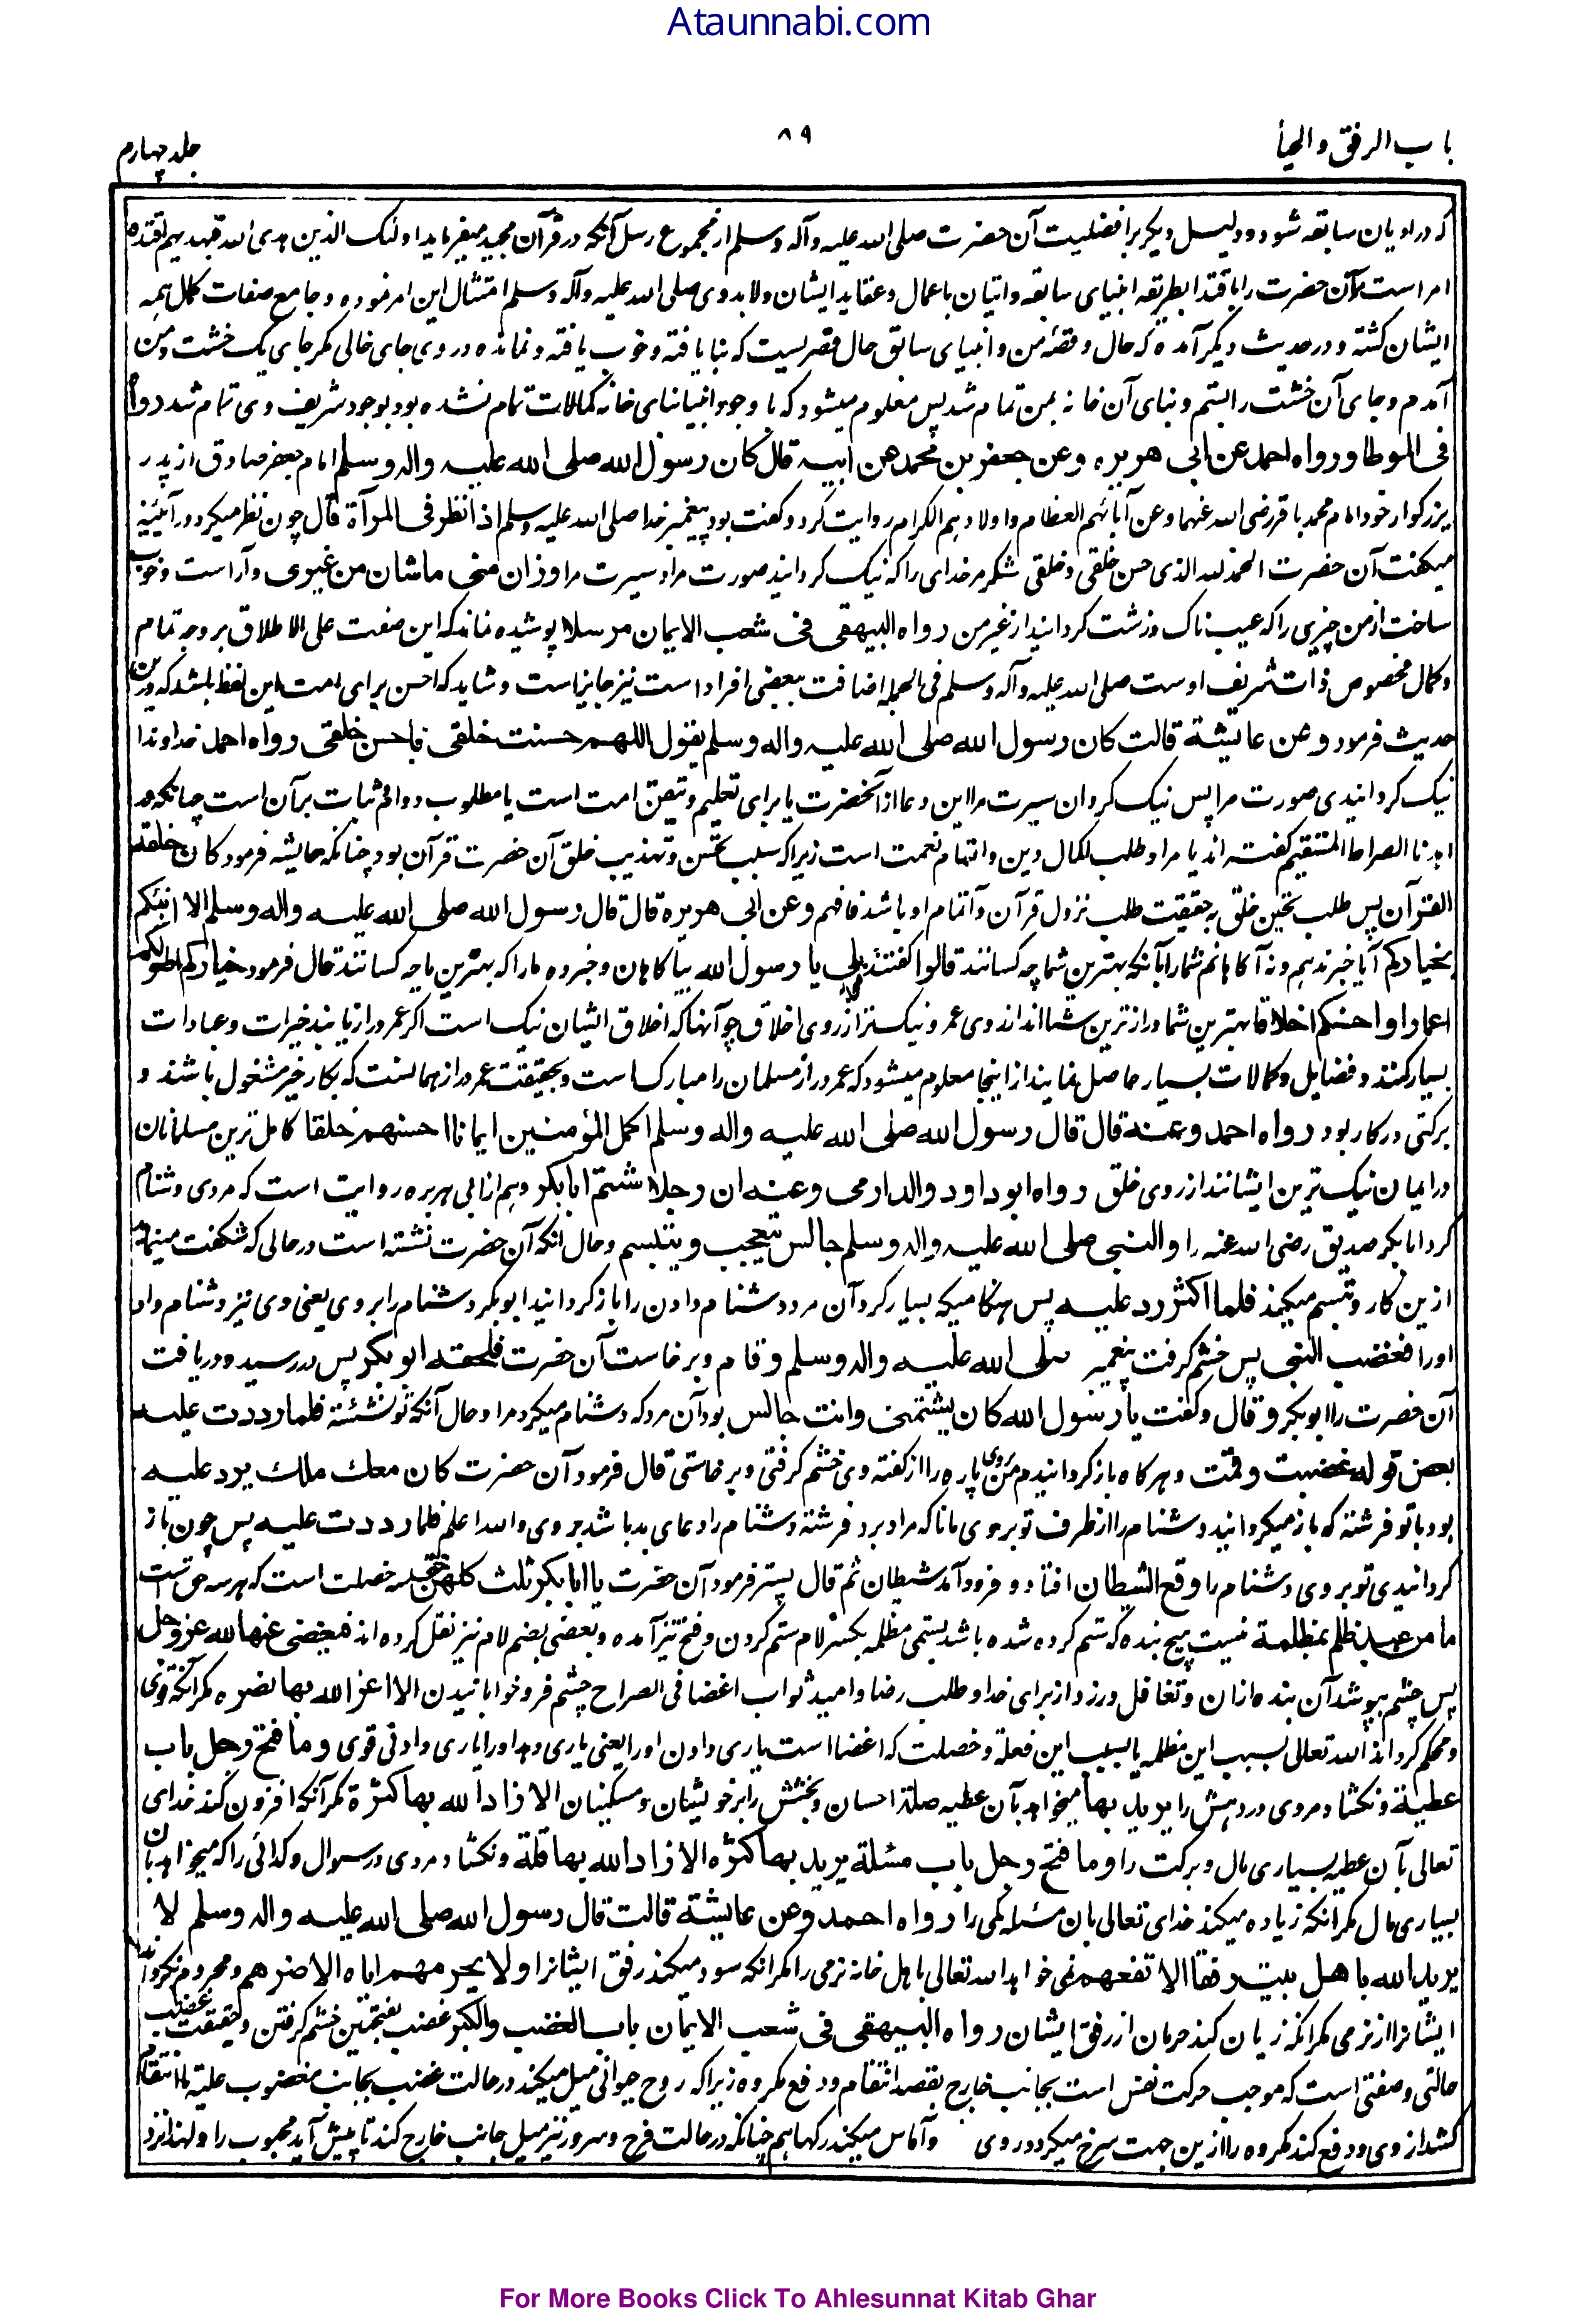 Ataunnabi.com
باب الرفق والحیأ
۸۹
جلد چهارم
که در ادیان سابقه شود و دلیل دیگر بر افضلیت آن حضرت صلی الله علیه وآله وسلم از مجموع رسل آنکه در قرآن مجید میفرماید اولئک الذین هدی الله فبهدیهم اقتده
امر است مر آن حضرت را باقتدا بطریقه انبیای سابقه واتیان باعمال وعقاید ایشان ولابد وی صلی الله علیه وآله وسلم امتثال این امر فرموده وجامع صفات کمال همه
ایشان گشته ودر حدیث دیگر آمده که حال وقصه من وانبیای سابق حال قصریست که بنا یافته وخوب یافته ونمانده در وی جای خالی مگر جای یک خشت ومن
آمدم وجای آن خشت را بستم وبنای آن خانه بمن تمام شد پس معلوم میشود که با وجود انبیا بنای خانه کمالات تمام نشده بود بوجود شریف وی تمام شد رواه
فی الموطا ورواه احمد عن ابی هریره وعن جعفر بن محمد عن ابیه قال کان رسول الله صلی الله علیه واله وسلم امام جعفر صادق از پدر
بزرگوار خود امام محمد باقر رضی الله عنهما وعن آبائهم العظام واولادهم الکرام روایت کرد وگفت بود پیغمبر خدا صلی الله علیه وسلم اذا نظر فی المرآة قال چون نظر میکرد در آئینه
میگفت آن حضرت الحمد لله الذی حسن خلقی وخلقی شکر مر خدای را که نیک گردانید صورت مرا وسیرت مرا وزان منی ماشان من غیری وآراست وخوب
ساخت از من چیزی را که عیب ناک وزشت گردانید از غیر من رواه البیهقی فی شعب الایمان مرسلا پوشیده نماند که این صفت علی الاطلاق بر وجه تمام
وکمال مخصوص ذات شریف اوست صلی الله علیه وآله وسلم فی الجمله اضافت ببعضی افراد است نیز جایز است وشاید که احسن برای امت این لفظ باشد که درین
حدیث فرمود وعن عایشة قالت کان رسول الله صلی الله علیه واله وسلم یقول اللهم حسنت خلقی فاحسن خلقی رواه احمد خداوندا
نیک گردانیدی صورت مرا پس نیک گردان سیرت مرا این دعا از آنحضرت یا برای تعلیم وتلقین امت است یا مطلوب دوام ثبات بر آن است چنانکه در
اهدنا الصراط المستقیم گفته اند یا مراد طلب اکمال دین واتمام نعمت است زیرا که سبب تحسین وتهذیب خلق آن حضرت قرآن بود چنانکه عایشه فرمود کان خلقه
القرآن پس طلب تحسین خلق به حقیقت طلب نزول قرآن واتمام او باشد فافهم وعن ابی هریره قال قال رسول الله صلی الله علیه واله وسلم الا انبئکم
بخیارکم آیا خبر ندهم ونه آگاهانم شمارا بآنکه بهترین شما چه کسانند قالوا گفتند بلی یا رسول الله بیاگاهان وخبر ده ما را که بهترین ما چه کسانند قال فرمود خیارکم اطولکم
اعمارا واحسنکم اخلاقا بهترین شما درازترین شما اند از روی عمر ونیکتر از روی اخلاق چو آنها که اخلاق ایشان نیک است اگر عمر دراز یابند خیرات وعبادات
بسیار کنند وفضایل وکمالات بسیار حاصل نمایند از اینجا معلوم میشود که عمر دراز مسلمان را مبارک است وبحقیقت عمر دراز همانست که بکار خیر مشغول باشند و
برکتی در کار بود رواه احمد وعنه قال قال رسول الله صلی الله علیه واله وسلم اکمل المؤمنین ایمانا احسنهم خلقا کامل ترین مسلمانان
در ایمان نیک ترین ایشانند از روی خلق رواه ابو داود والدارمی وعنه ان رجلا شتم ابابکر وهم از ابی هریره روایت است که مردی دشنام
کرد ابابکر صدیق رضی الله عنه را والنبی صلی الله علیه واله وسلم جالس یتعجب ویتبسم وحال آنکه آن حضرت نشسته است در حالی که شگفت مینماید
ازین کار وتبسم میکند فلما اکثر رد علیه پس هنگامیکه بسیار کرد آن مرد دشنام دادن را باز گردانید ابوبکر دشنام را بر وی یعنی وی نیز دشنام داد
اورا فغضب النبی پس خشم گرفت پیغمبر صلی الله علیه واله وسلم وقام وبر خاست آن حضرت فلحقه ابو بکر پس در رسید ودریافت
آن حضرت را ابوبکر وقال وگفت یا رسول الله کان یشتمنی وانت جالس بود آن مرد که دشنام میکرد مرا وحال آنکه تو نشسته فلما رددت علیه
بعض قوله غضبت وقمت وهرگاه باز گردانیدم من بروی پاره را از گفته وی خشم گرفتی وبر خاستی قال فرمود آن حضرت کان معک ملک یرد علیه
بود با تو فرشته که باز میگردانید دشنام را از طرف تو بر وی مانا که مراد برد فرشته دشنام را دعای بد باشد بر وی والله اعلم فلما رددت علیه پس چون باز
گردانیدی تو بر وی دشنام را وقع الشیطان افتاد وفرود آمد شیطان ثم قال پستر فرمود آن حضرت یا ابابکر ثلث کلهن حق سه خصلت است که هر سه حق است
ما من عبد ظلم بمظلمة نیست هیچ بنده که ستم کرده شده باشد بستمی مظلمه بکسر لام ستم کردن وفتح نیز آمده وبعضی بضم لام نیز نقل کرده اند فیغضی عنها لله عز وجل
پس چشم بپوشد آن بنده ازان وتغافل ورزد از برای خدا وطلب رضا وامید ثواب اغضا فی الصراح چشم فرو خوابانیدن الا اعز الله بها نصره مگر آنکه قوی
ومحکم گرداند الله تعالی بسبب این مظلمه یا بسبب این فعله وخصلت که اغضا است یاری دادن اورا یعنی یاری دهد اورا یاری دادنی قوی وما فتح رجل باب
عطیة ونکشاد مردی در دهش را یرید بها میخواهد بآن عطیه صلة احسان وبخشش را بر خویشان ومسکینان الا زاد الله بها کثرة مگر آنکه افزون کند خدای
تعالی بآن عطیه بسیاری مال وبرکت را وما فتح رجل باب مسئلة یرید بها کثره الا زاد الله بها قلة ونکشاد مردی در سوال وگدائی را که میخواهد بآن
بسیاری مال مگر انکه زیاده میکند خدای تعالی بان مسئله کمی را رواه احمد وعن عایشة قالت قال رسول الله صلی الله علیه واله وسلم لا
یرید الله باهل بیت رفقا الا نفعهم نمی خواهد الله تعالی باهل خانه نرمی را مگر انکه سود میکند رفق ایشانرا ولا یحرمهم ایاه الا ضرهم ومحروم نگرداند
ایشانرا از نرمی مگر انکه زیان کند حرمان از رفق ایشان رواه البیهقی فی شعب الایمان باب الغضب والکبر غضب بفتحتین خشم گرفتن وحقیقت غضب
حالتی وصفتی است که موجب حرکت نفس است بجانب خارج بقصد انتقام ودفع مکروه زیرا که روح حیوانی میل میکند در حالت غضب بجانب مغضوب علیه تا انتقام
کشد از وی ودفع کند مکروه را ازین جهت سرخ میگردد روی وآماس میکند رگها هم چنانکه در حالت فرح وسرور نیز میل جانب خارج کند تا پیش آید محبوب را ولهذا نزد
For More Books Click To Ahlesunnat Kitab Ghar